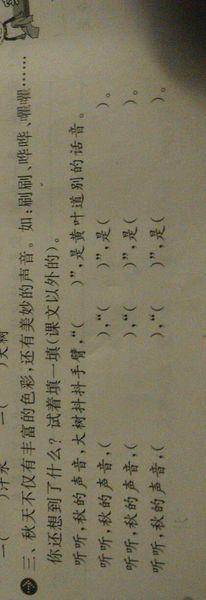 一(  )汗水  一(  )大树
三、秋天不仅有丰富的色彩,还有美妙的声音。如:刷刷、哗哗、嚯嚯……
你还想到了什么?试着填一填(课文以外的)。
听听,秋的声音,大树抖抖手臂,“(  )”,是黄叶道别的话音。
听听,秋的声音,(  ),“(  )”,是(  )。
听听,秋的声音,(  ),“(  )”,是(  )。
听听,秋的声音,(  ),“(  )”,是(  )。